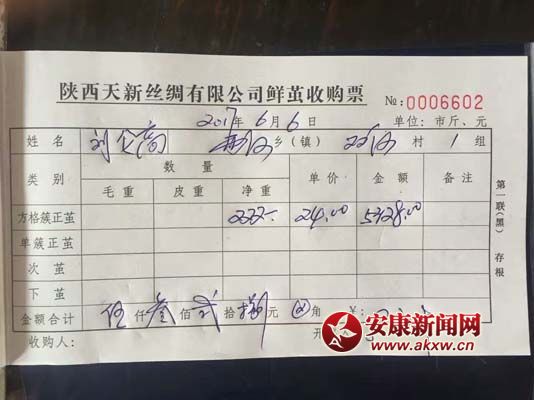 陕西天新丝绸有限公司鲜茧收购票
№:0006602
2017年6月6日 单位:市斤、元
姓名 乡(镇) 双河 村 1 组
类别 数量 单价 金额 备注
毛重 皮重 净重
方格簇正茧 222 24.00 5328.00
单簇正茧
次茧
下茧
金额合计 伍仟叁佰贰拾捌元 角 ¥:
收购人: 开
第一联(黑) 存根
安康新闻网
www.akxw.cn